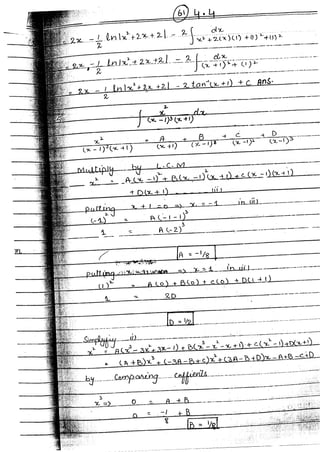 61 4.4
= 2x - 1/2 ln|x²+2x+2| - 2 ∫ dx / x²+2(x)(1)+(1)²+(1)²
= 2x - 1/2 ln|x²+2x+2| - 2 ∫ dx / (x+1)²+(1)²
= 2x - 1/2 ln|x²+2x+2| - 2 tan⁻¹(x+1) + C Ans.
∫ x² / (x-1)³(x+1) dx
x² / (x-1)³(x+1) = A/(x+1) + B/(x-1) + C/(x-1)² + D/(x-1)³
Multiply by L.C.M
x² = A(x-1)³ + B(x-1)²(x+1) + C(x-1)(x+1)
+ D(x+1) (i)
Putting x+1=0 => x=-1 in (i)
(-1)² = A(-1-1)³
1 = A(-2)³
A = -1/8
Putting => x=1 in (i)
(1)² = A(0) + B(0) + C(0) + D(1+1)
1 = 2D
D = 1/2
Simplify (i)
x² = A(x³-3x²+3x-1) + B(x³-x²-x+1) + C(x²-1) + D(x+1)
= (A+B)x³ + (-3A-B+C)x² + (3A-B+D)x - A+B-C+D
by Comparing Coffients
x³ => 0 = A + B
0 = -1/8 + B
B = 1/8